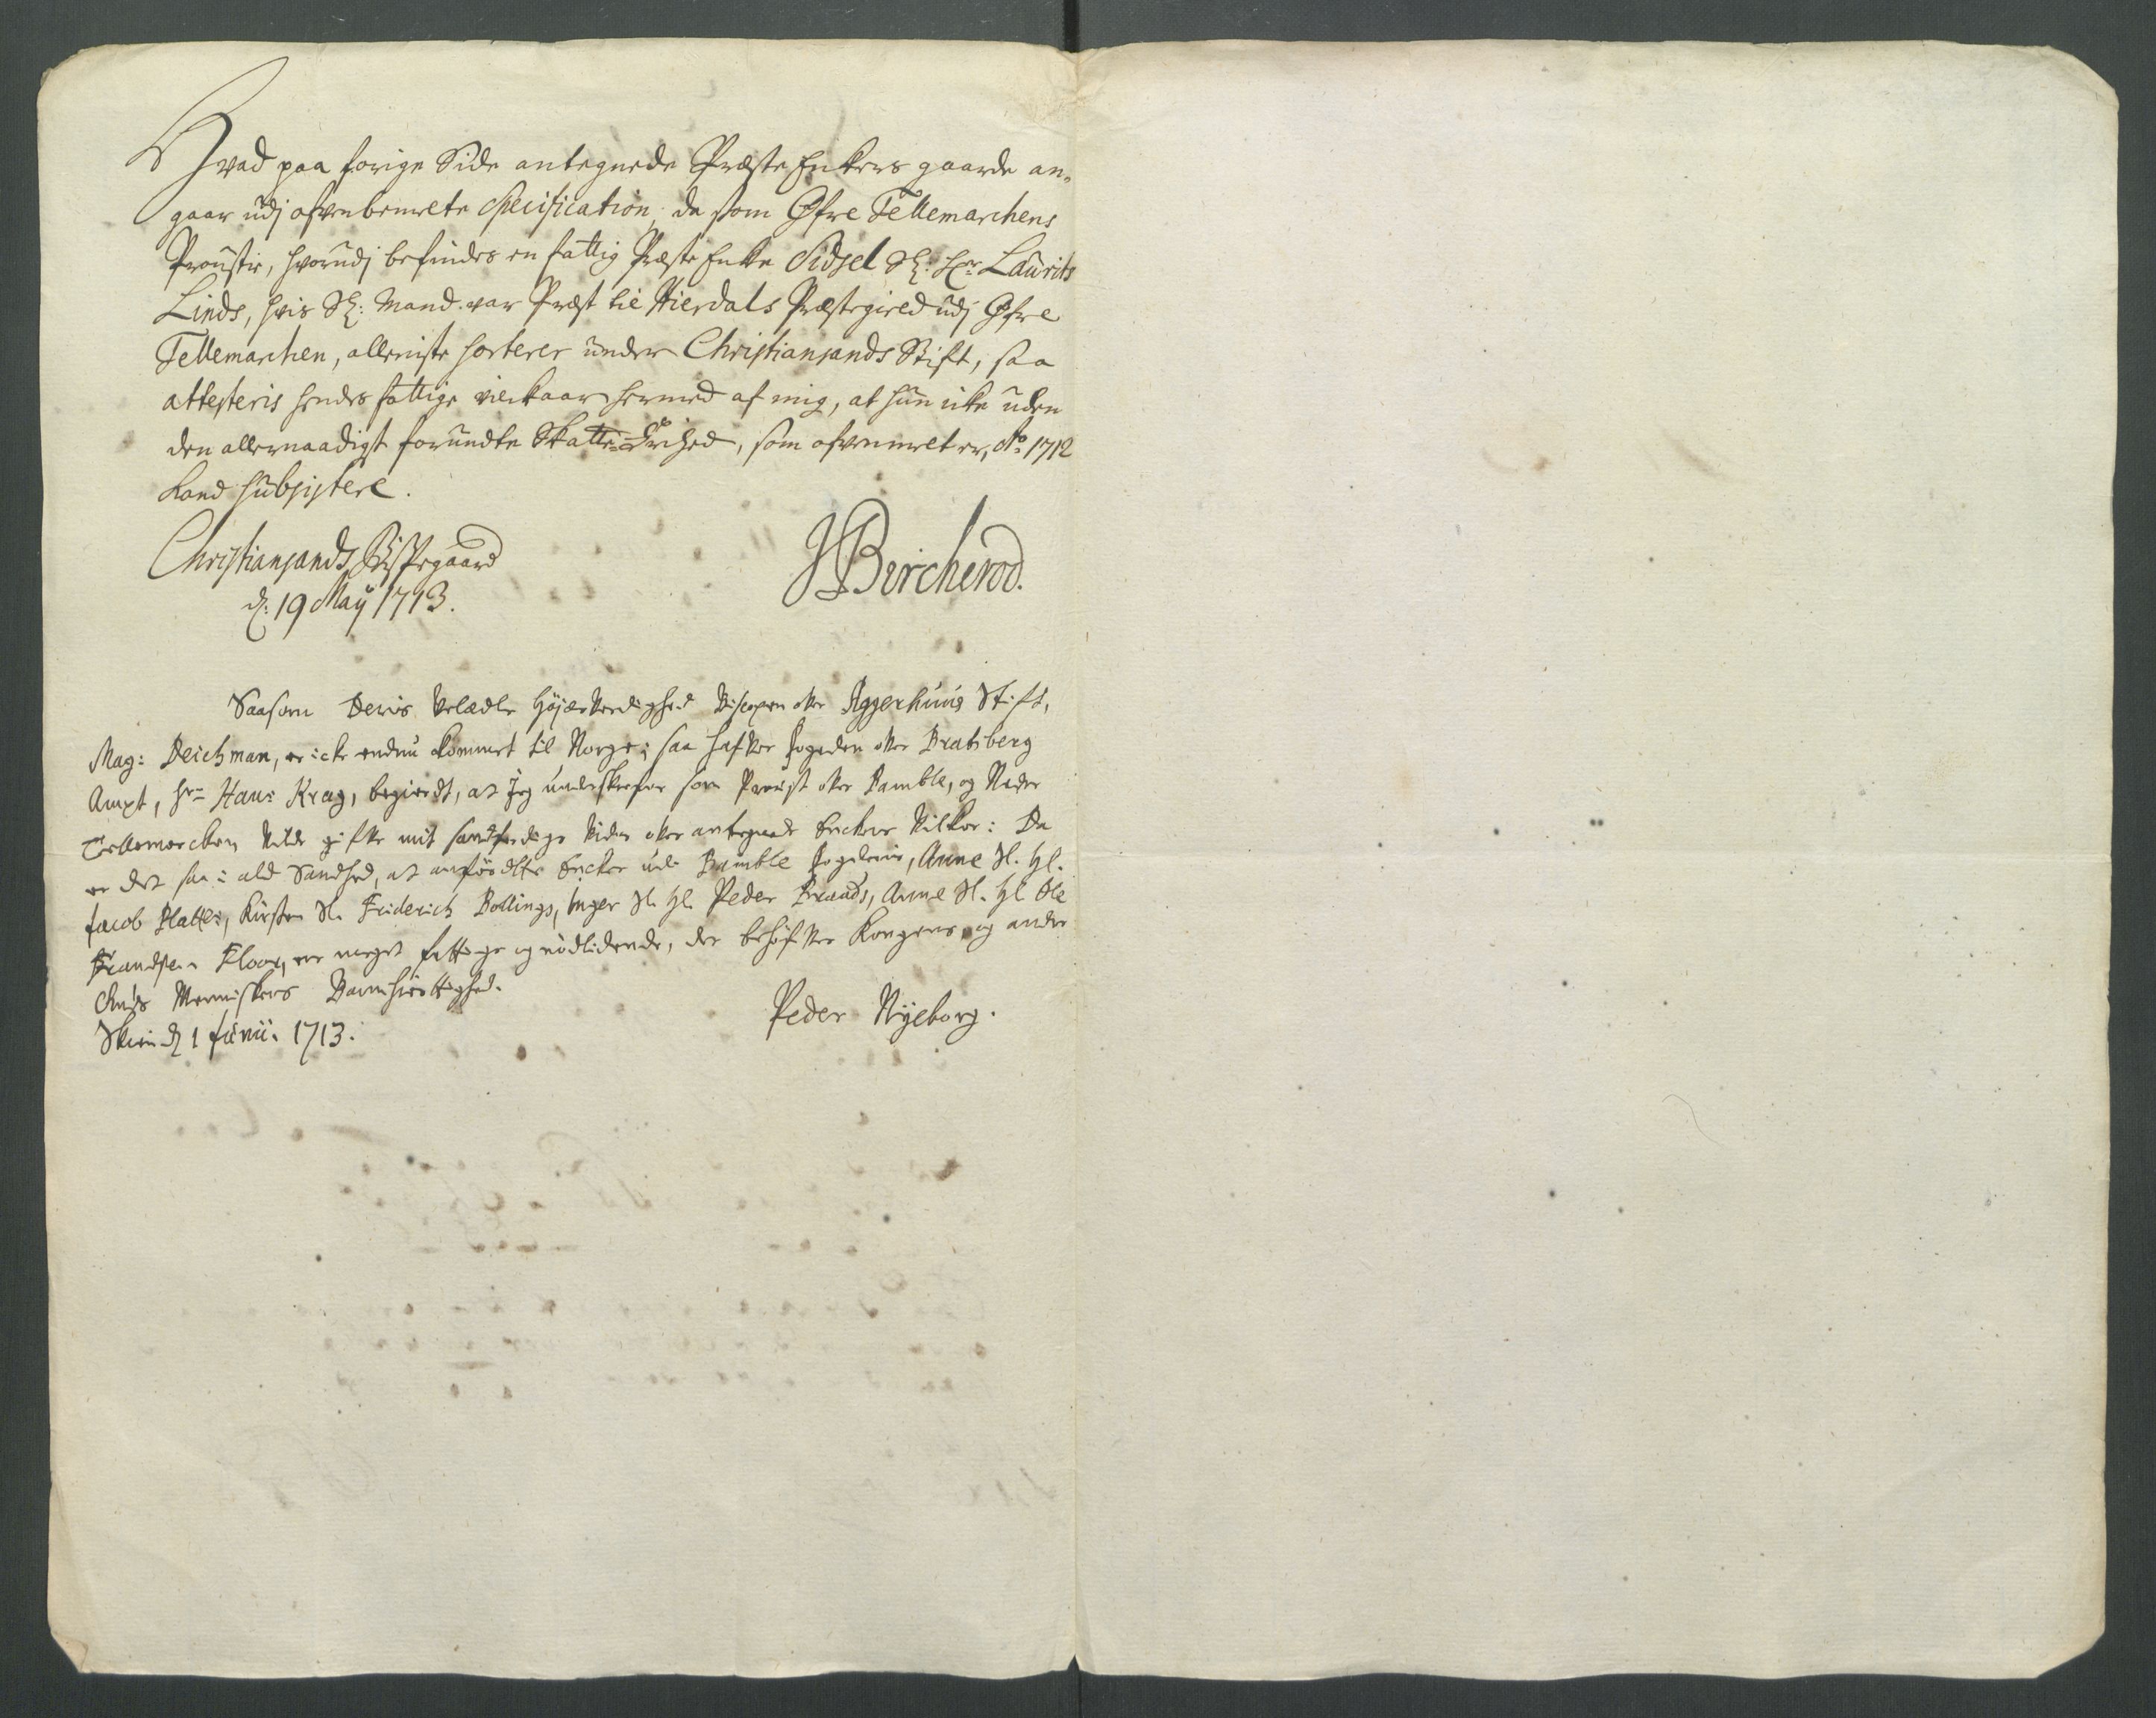 Hvad paa forige Side antegnede Præste Enkers gaarde an-
gaar udj ofvenbemelte Specification, da som Øfre Tellemarchens
Proustie, hvorudj befindes en fattig Præste Enke Sidsel Sl: Hr. Laurits
Linds, hvis Sl: Mand var Præst til Hierdals Præstegield udj Øfre
Tellemarchen, alleniste sorterer under Christiansands Stift, saa
attesteris hendes fattige vilckaar hermed af mig, at hun icke uden
den allernaadigst forundte Skatte-Frihed, som ofvenmelt er, Ao 1712
kand subsistere.
Christiansands Bispegaard
d: 19 Maÿ 1713.
JBircherod.
Saasom Deris Velædle Höjærverdighed Biscopen over Aggerhuus Stift,
Mag: Deichman, er icke endnu kommet til Norge; saa hafver fogeden over Bratsberg
Ampt, Hr. Hans Krag, begierdt, at Jeg underskrefne som Provist over Bamble, og Neder
Tellemarcken Vilde gifve mit sandferdige Vidne over antegnede Enckers Vilkor: Da
er det saa i ald Sandhed, at anfördte Encker udi Bamble fogderie, Anne Sl. Hl.
Jacob Platts, Kirsten Sl. Friderich Bollings, Inger Sl. Hl. Peder Brands, Anne Sl. Hl Ole
Frandsen Floor, ere meget fattige og nödlidende, der behöfver Kongens og andre
Christ. Menniskers Barmhiertighed.
Skien d 1 Junii. 1713.
Peder Nÿeborg.